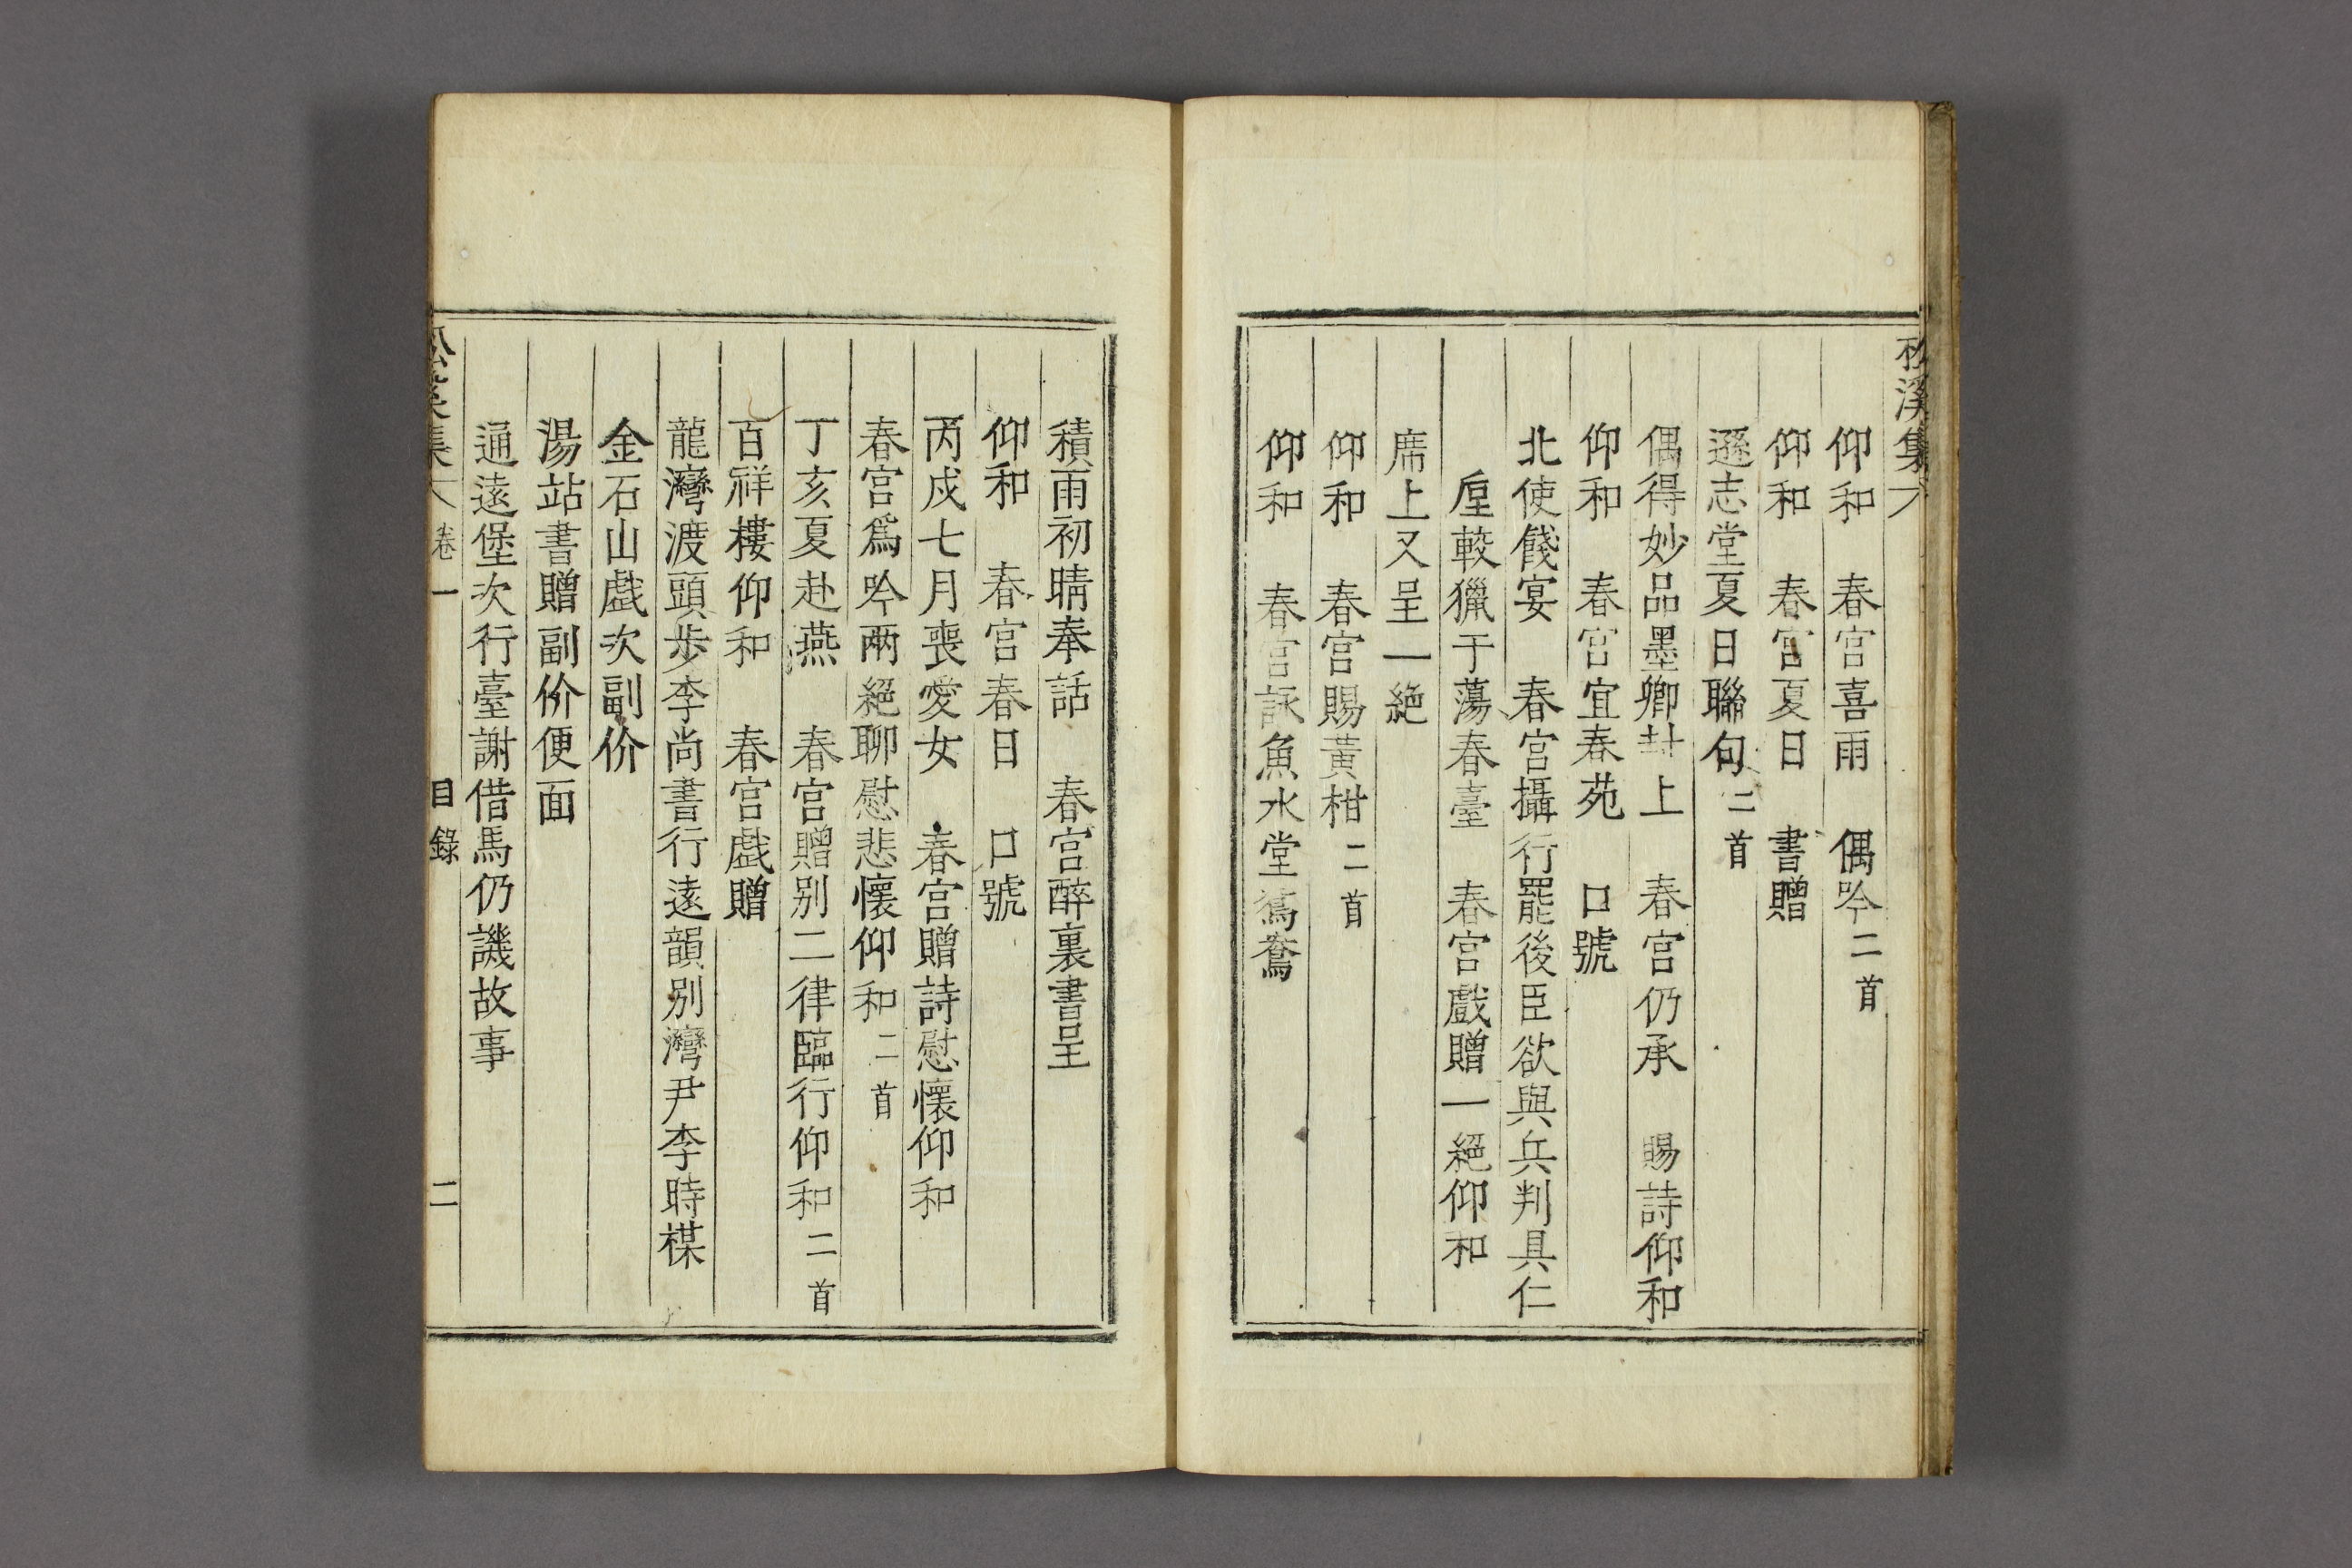 松溪集
仰和　春宮喜雨　偶吟二首
仰和　春宮夏日　書贈
遜志堂夏日聯句二首
偶得妙品墨卿封上　春宮仍承　賜詩仰和
仰和　春宮宜春苑　口號
北使餞宴　春宮攝行罷後臣欲與兵判具仁
垕較獵于蕩春臺　春宮戲贈一絕仰和
席上又呈一絕
仰和　春宮賜黃柑二首
仰和　春宮詠魚水堂鴛鴦
積雨初晴奉話　春宮醉裏書呈
仰和　春宮春日　口號
丙戌七月喪愛女　春宮贈詩慰懷仰和
春宮爲吟兩絕聊慰悲懷仰和二首
丁亥夏赴燕　春宮贈別二律臨行仰和二首
百祥樓仰和　春宮戱贈
龍灣渡頭步李尚書行遠韻別灣尹李時楳
金石山戱次副价
湯站書贈副价便面
通遠堡次行臺謝借馬仍譏故事
松溪集　卷一　目錄　二